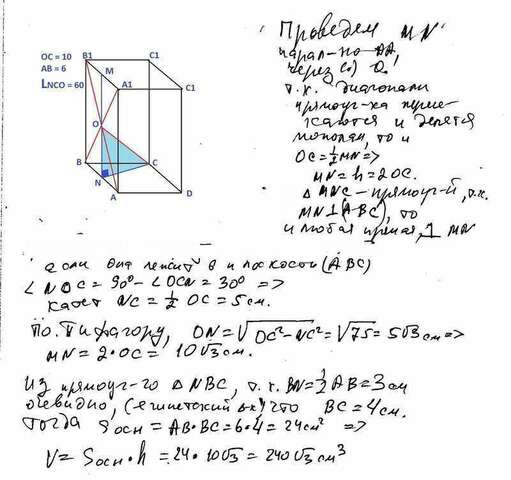 OC = 10
AB = 6
∟NCO = 60
B1
C1
M
A1
C1
O
B
C
N
A
D
Проведем MN
парал-но AA₁
через (·) O.
т.к. диагонали
прямоуг-ка пересе-
каются и делятся
пополам, то и
OC = ½ MN =>
MN = h = 2OC.
△ MNC – прямоуг-й, т.к.
MN ⊥ (ABC), то
и любая прямая, ⊥ MN
если она лежит в плоскости (ABC)
∠ NOC = 90° – ∠OCN = 30° =>
катет NC = ½ OC = 5 см.
По т. Пифагору, ON = √OC² – NC² = √75 = 5√3 см =>
MN = 2 · OC = 10√3 см.
Из прямоуг-го △ NBC, т.к. BN = ½ AB = 3 см
очевидно, (египетский △-к) что BC = 4 см.
тогда Sосн = AB · BC = 6 · 4 = 24 см² =>
V = Sосн · h = 24 · 10√3 = 240√3 см³